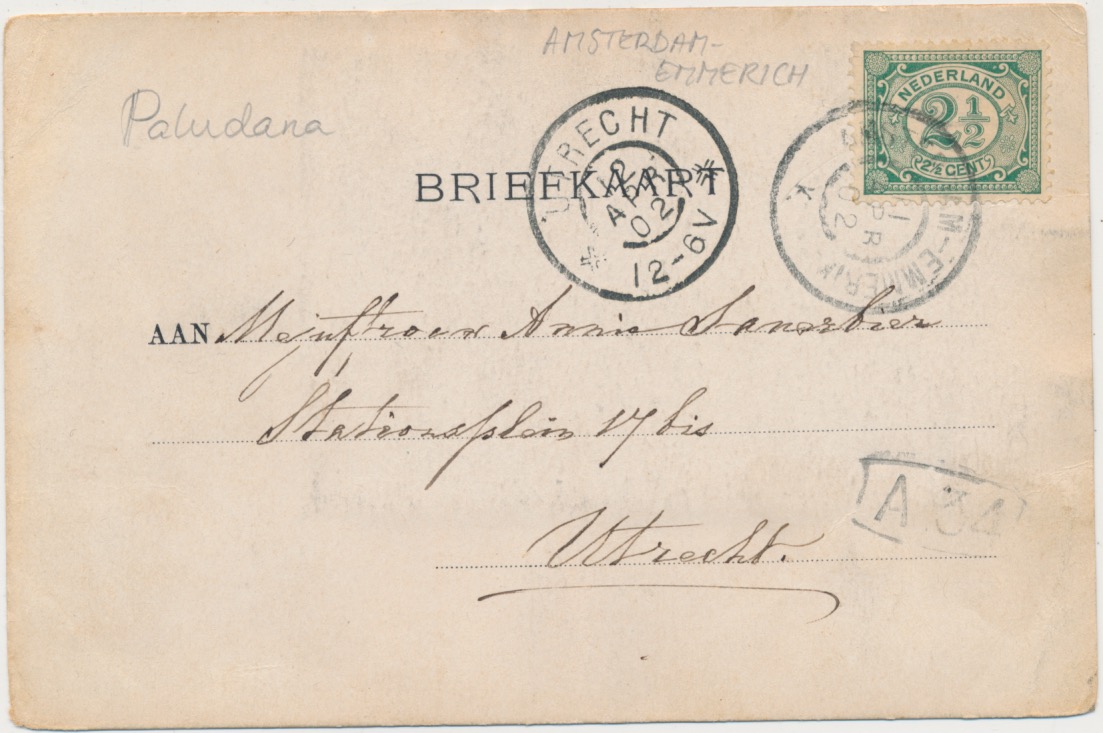 AMSTERDAM-
EMMERICH
Paludana
NEDERLAND
2 1/2
2½ CENT
UTRECHT
12
APR
02
12-6V
M-EMMERIK
APR
02
K
BRIEFKAART
AAN Mejuffrouw Annie Sanerbier
Stationsplein 17 bis
A 34
Utrecht.